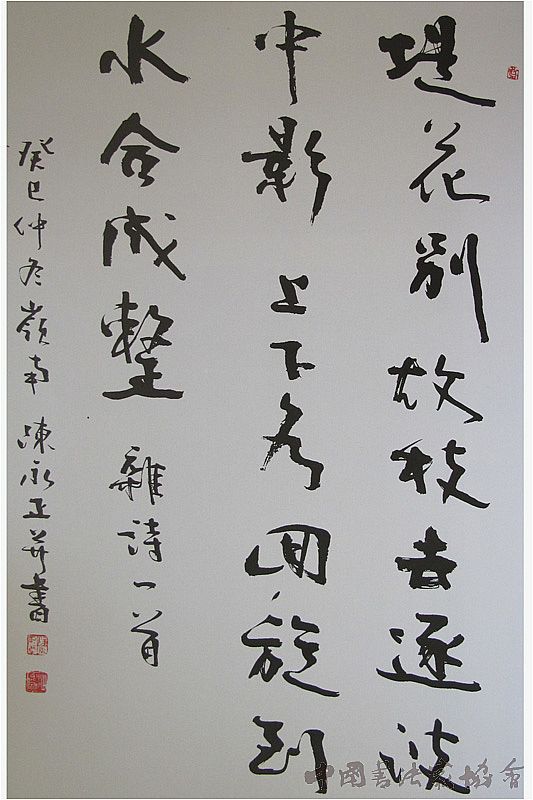 堤花別故枝去逐波
中影上下各回旋到
水合成整 雜詩一首
癸巳仲冬嶺南陳永正并書
中國書法家協會